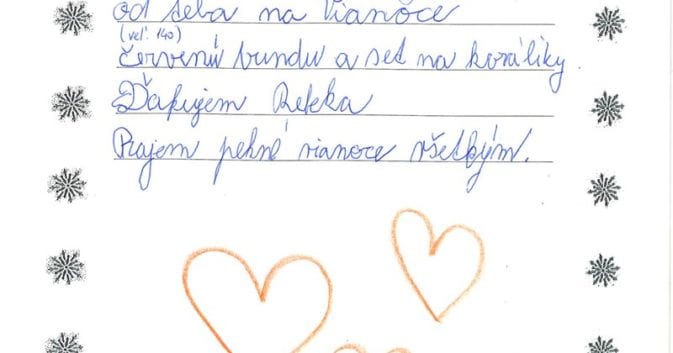 od teba na Vianoce
(veľ. 140)
červenú bundu a set na koráliky
Ďakujem Rebeka
Prajem pekné vianoce všetkým.